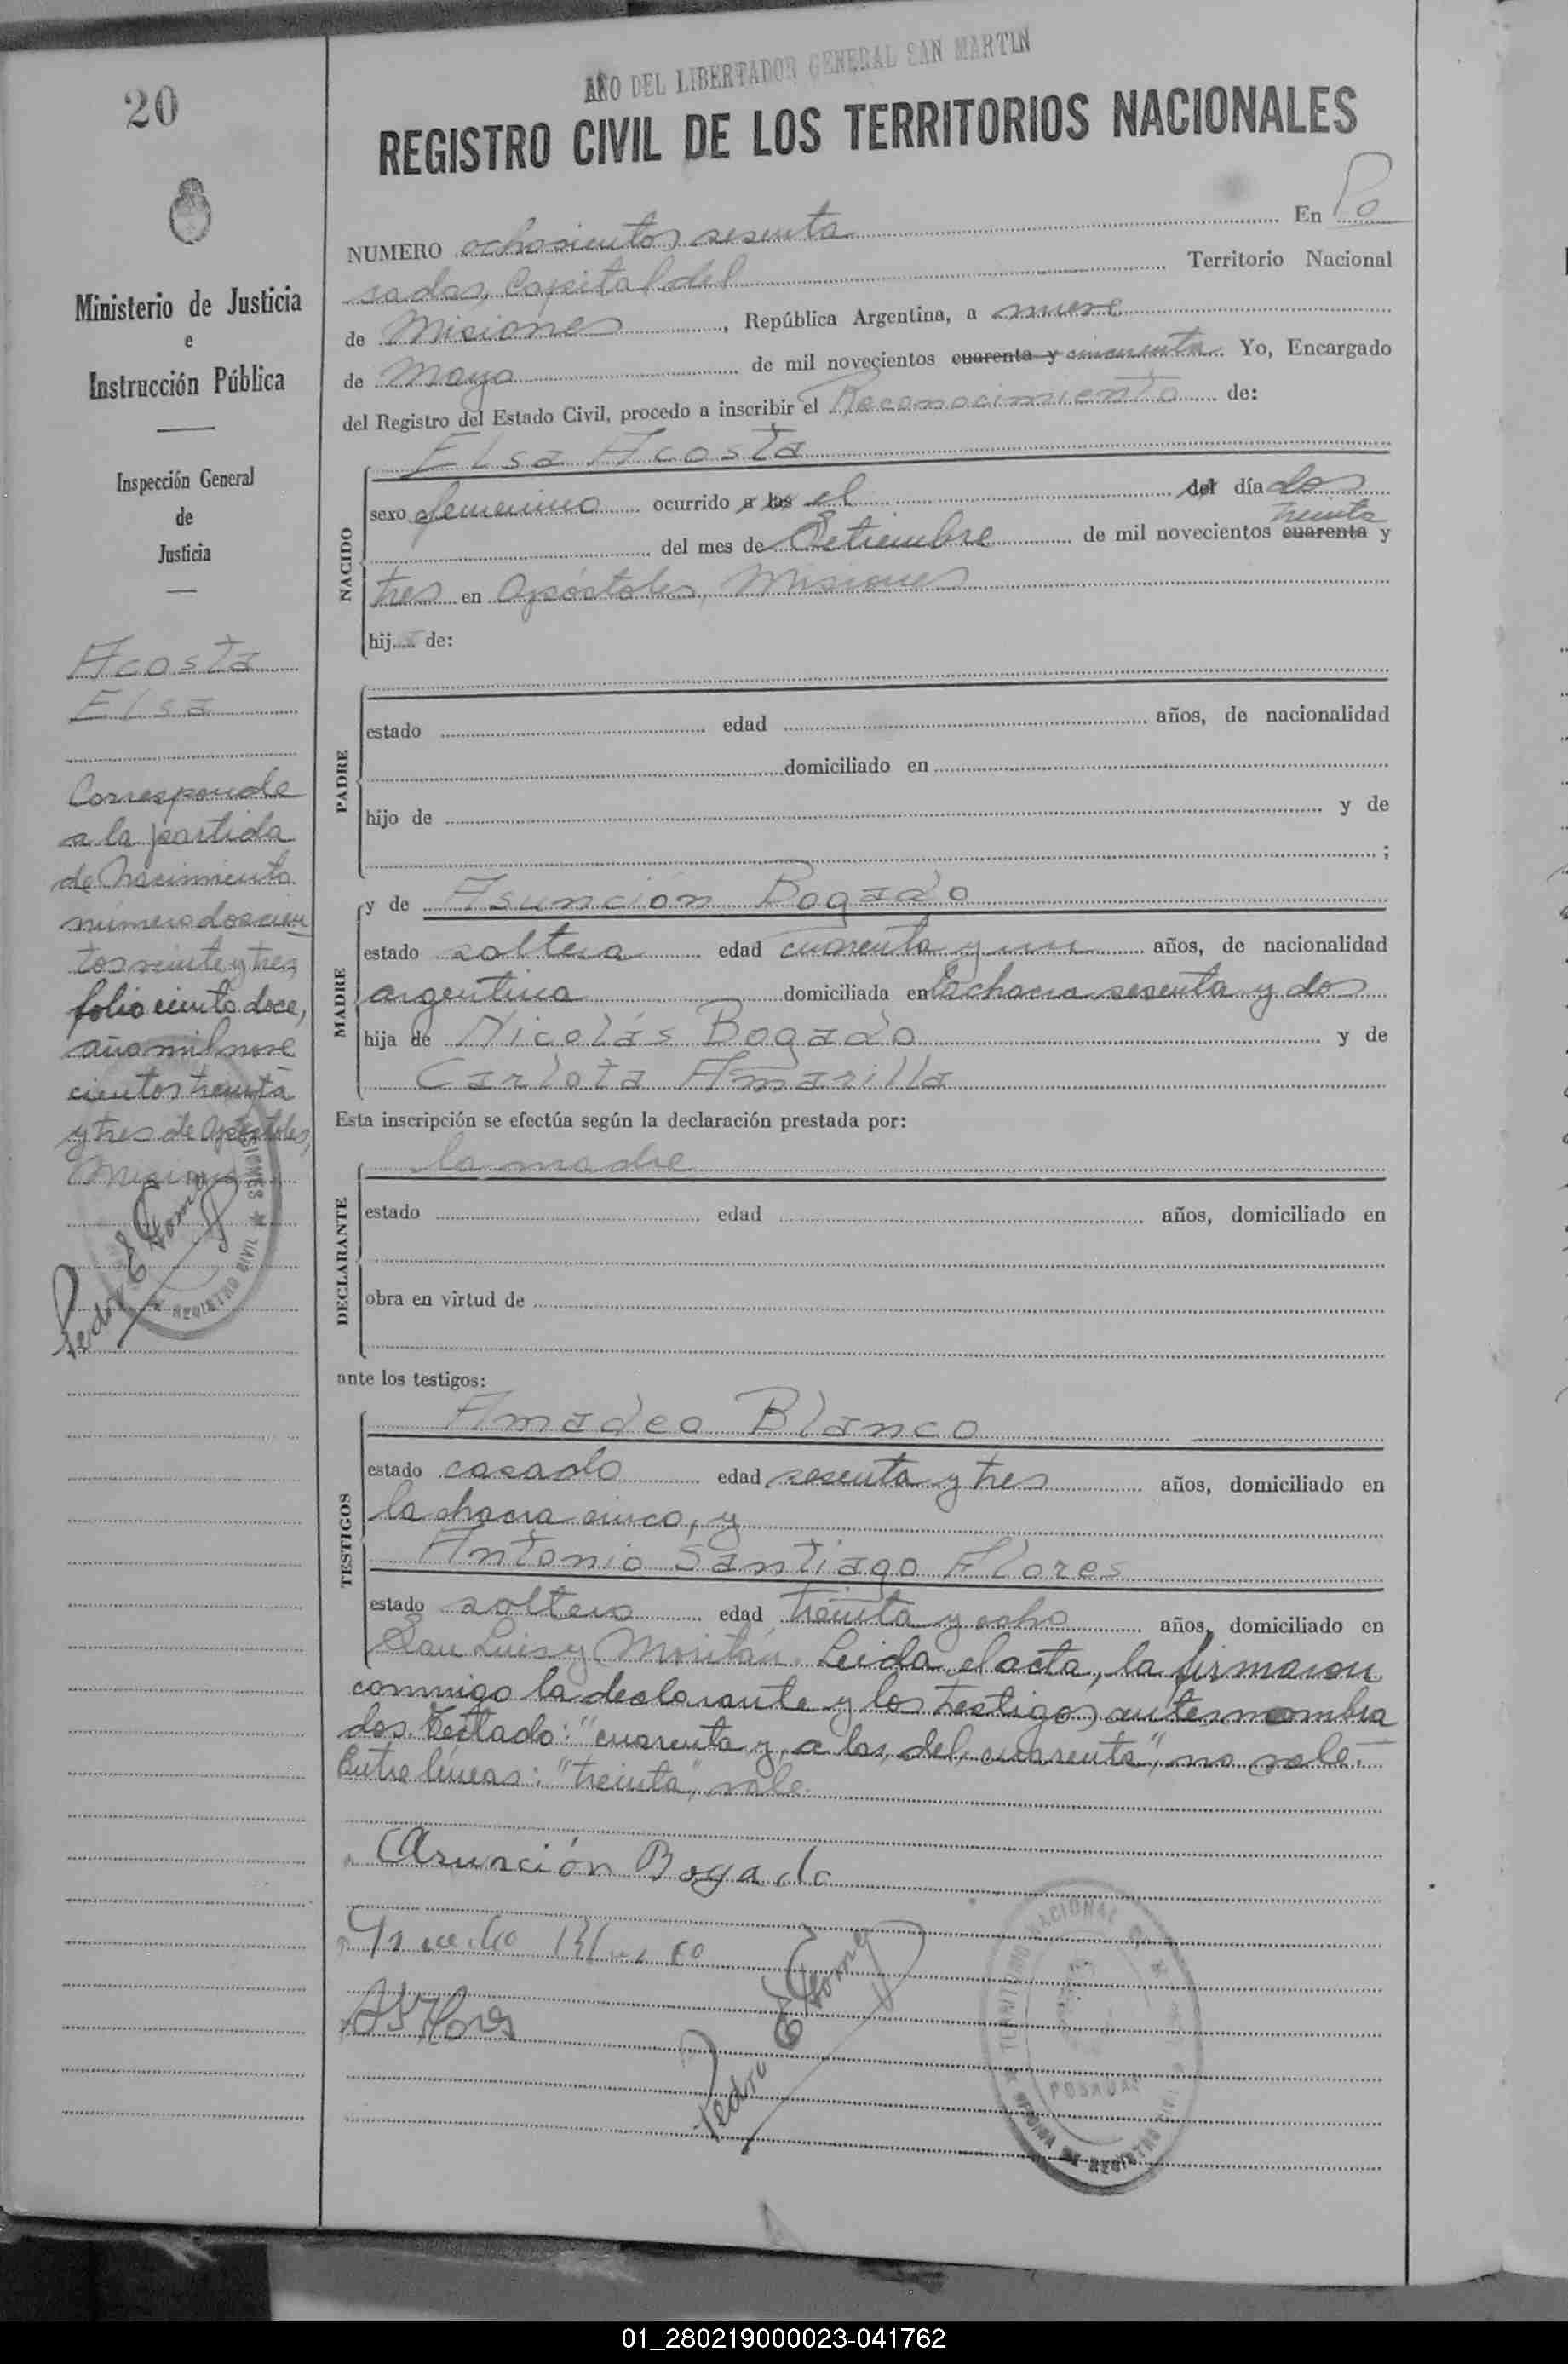 20
Ministerio de Justicia
e
Instrucción Pública
Inspección General
de
Justicia
Acosta
Elsa
Corresponde
a la partida
de Nacimiento
número doscien
tos veinte y tres,
folio ciento doce,
año mil nove
cientos treinta
y tres de Apóstoles,
Misiones
Pedro E
SIONES ★ CIVIL
REGISTRO
AÑO DEL LIBERTADOR GENERAL SAN MARTIN
REGISTRO CIVIL DE LOS TERRITORIOS NACIONALES
NUMERO ochosientos sesenta En Po
sadas, Capital del Territorio Nacional
de Misiones, República Argentina, a nueve
de Mayo de mil novecientos cuarenta y cincuenta. Yo, Encargado
del Registro del Estado Civil, procedo a inscribir el Reconocimiento de:
NACIDO
Elsa Acosta
sexo femenino ocurrido a las el del día dos
treinta
del mes de Setiembre de mil novecientos cuarenta y
tres en Apóstoles, Misiones
hij de:
PADRE
estado edad años, de nacionalidad
domiciliado en
hijo de y de
;
MADRE
y de Asunción Bogado
estado soltera edad cuarenta y un años, de nacionalidad
argentina domiciliada en la chacra sesenta y dos
hija de Nicolás Bogado y de
Carlota Amarilla
Esta inscripción se efectúa según la declaración prestada por:
DECLARANTE
la madre
estado edad años, domiciliado en
obra en virtud de
ante los testigos:
TESTIGOS
Amadeo Blanco
estado casado edad sesenta y tres años, domiciliado en
la chacra cinco, y
Antonio Santiago Flores
estado soltero edad treinta y ocho años, domiciliado en
San Luis y Moritán. Leida el acta, la firmaron
conmigo la declarante y los testigos antes nombra
dos. Testado: "cuarenta y, a las, del, cuarenta", no vale.-
Entre líneas: "treinta", vale.
Asunción Bogado
A S Flores
Pedro E
TERRITORIO NACIONAL
POSADAS
OFICINA DE REGISTRO CIVIL
01_280219000023-041762